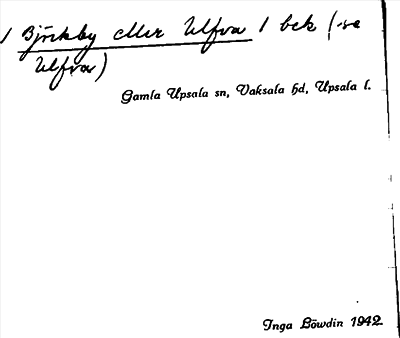 1 Björkby eller Ulfva 1 bek (-va
Ulfva)
Gamla Upsala sn, Vaksala hd, Upsala l.
Inga Löwdin 1942.